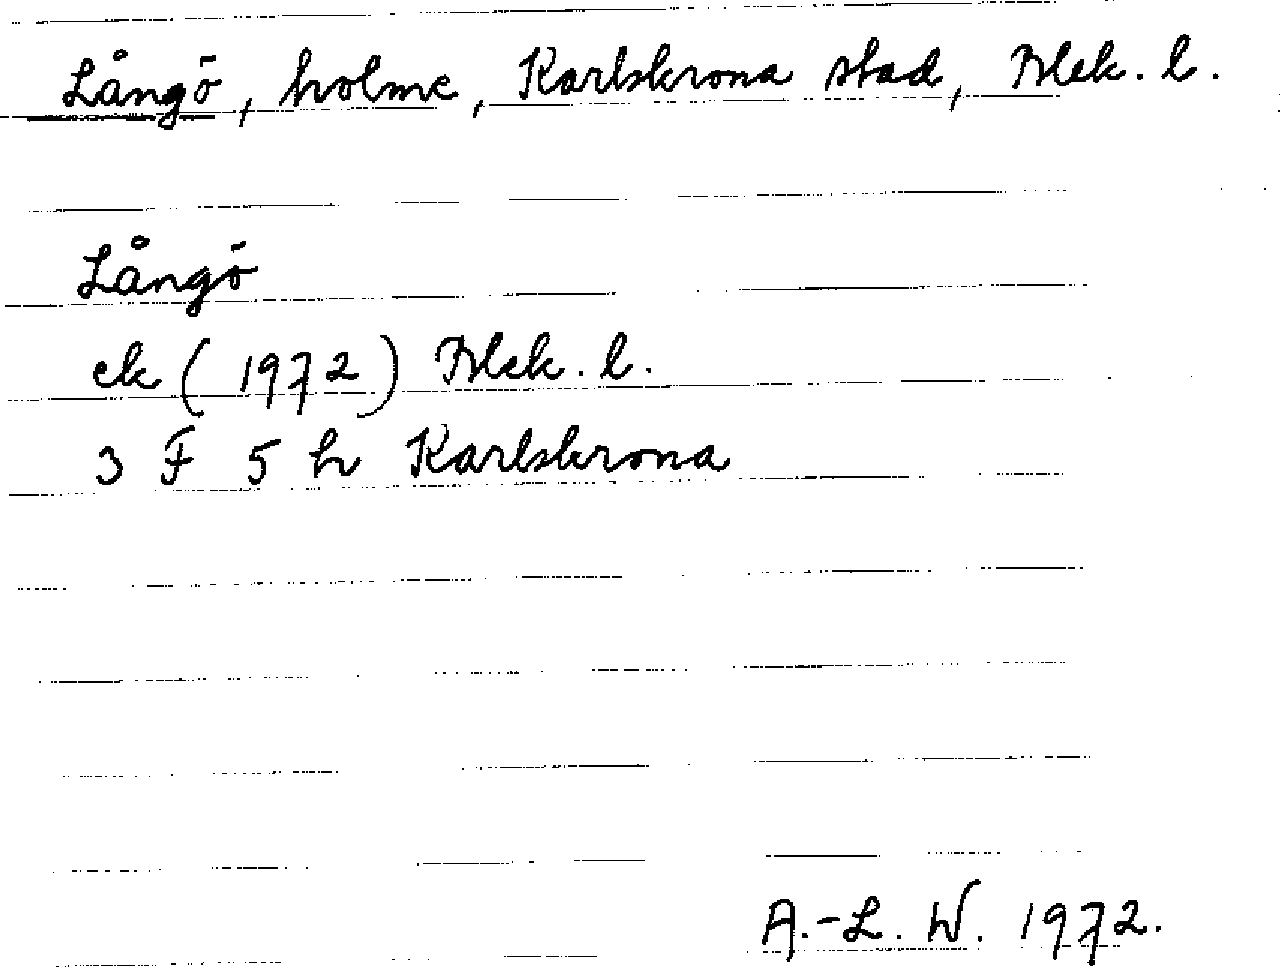 Långö, holme, Karlskrona stad, Blek. l.
Långö
ek (1972) Blek. l.
3 F 5 h Karlskrona
A.-L. W. 1972.